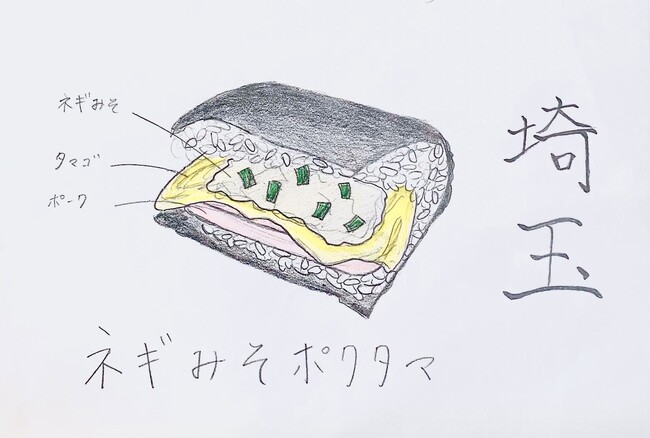 ネギみそ
タマゴ
ポーク
埼玉
ネギみそポクタマ